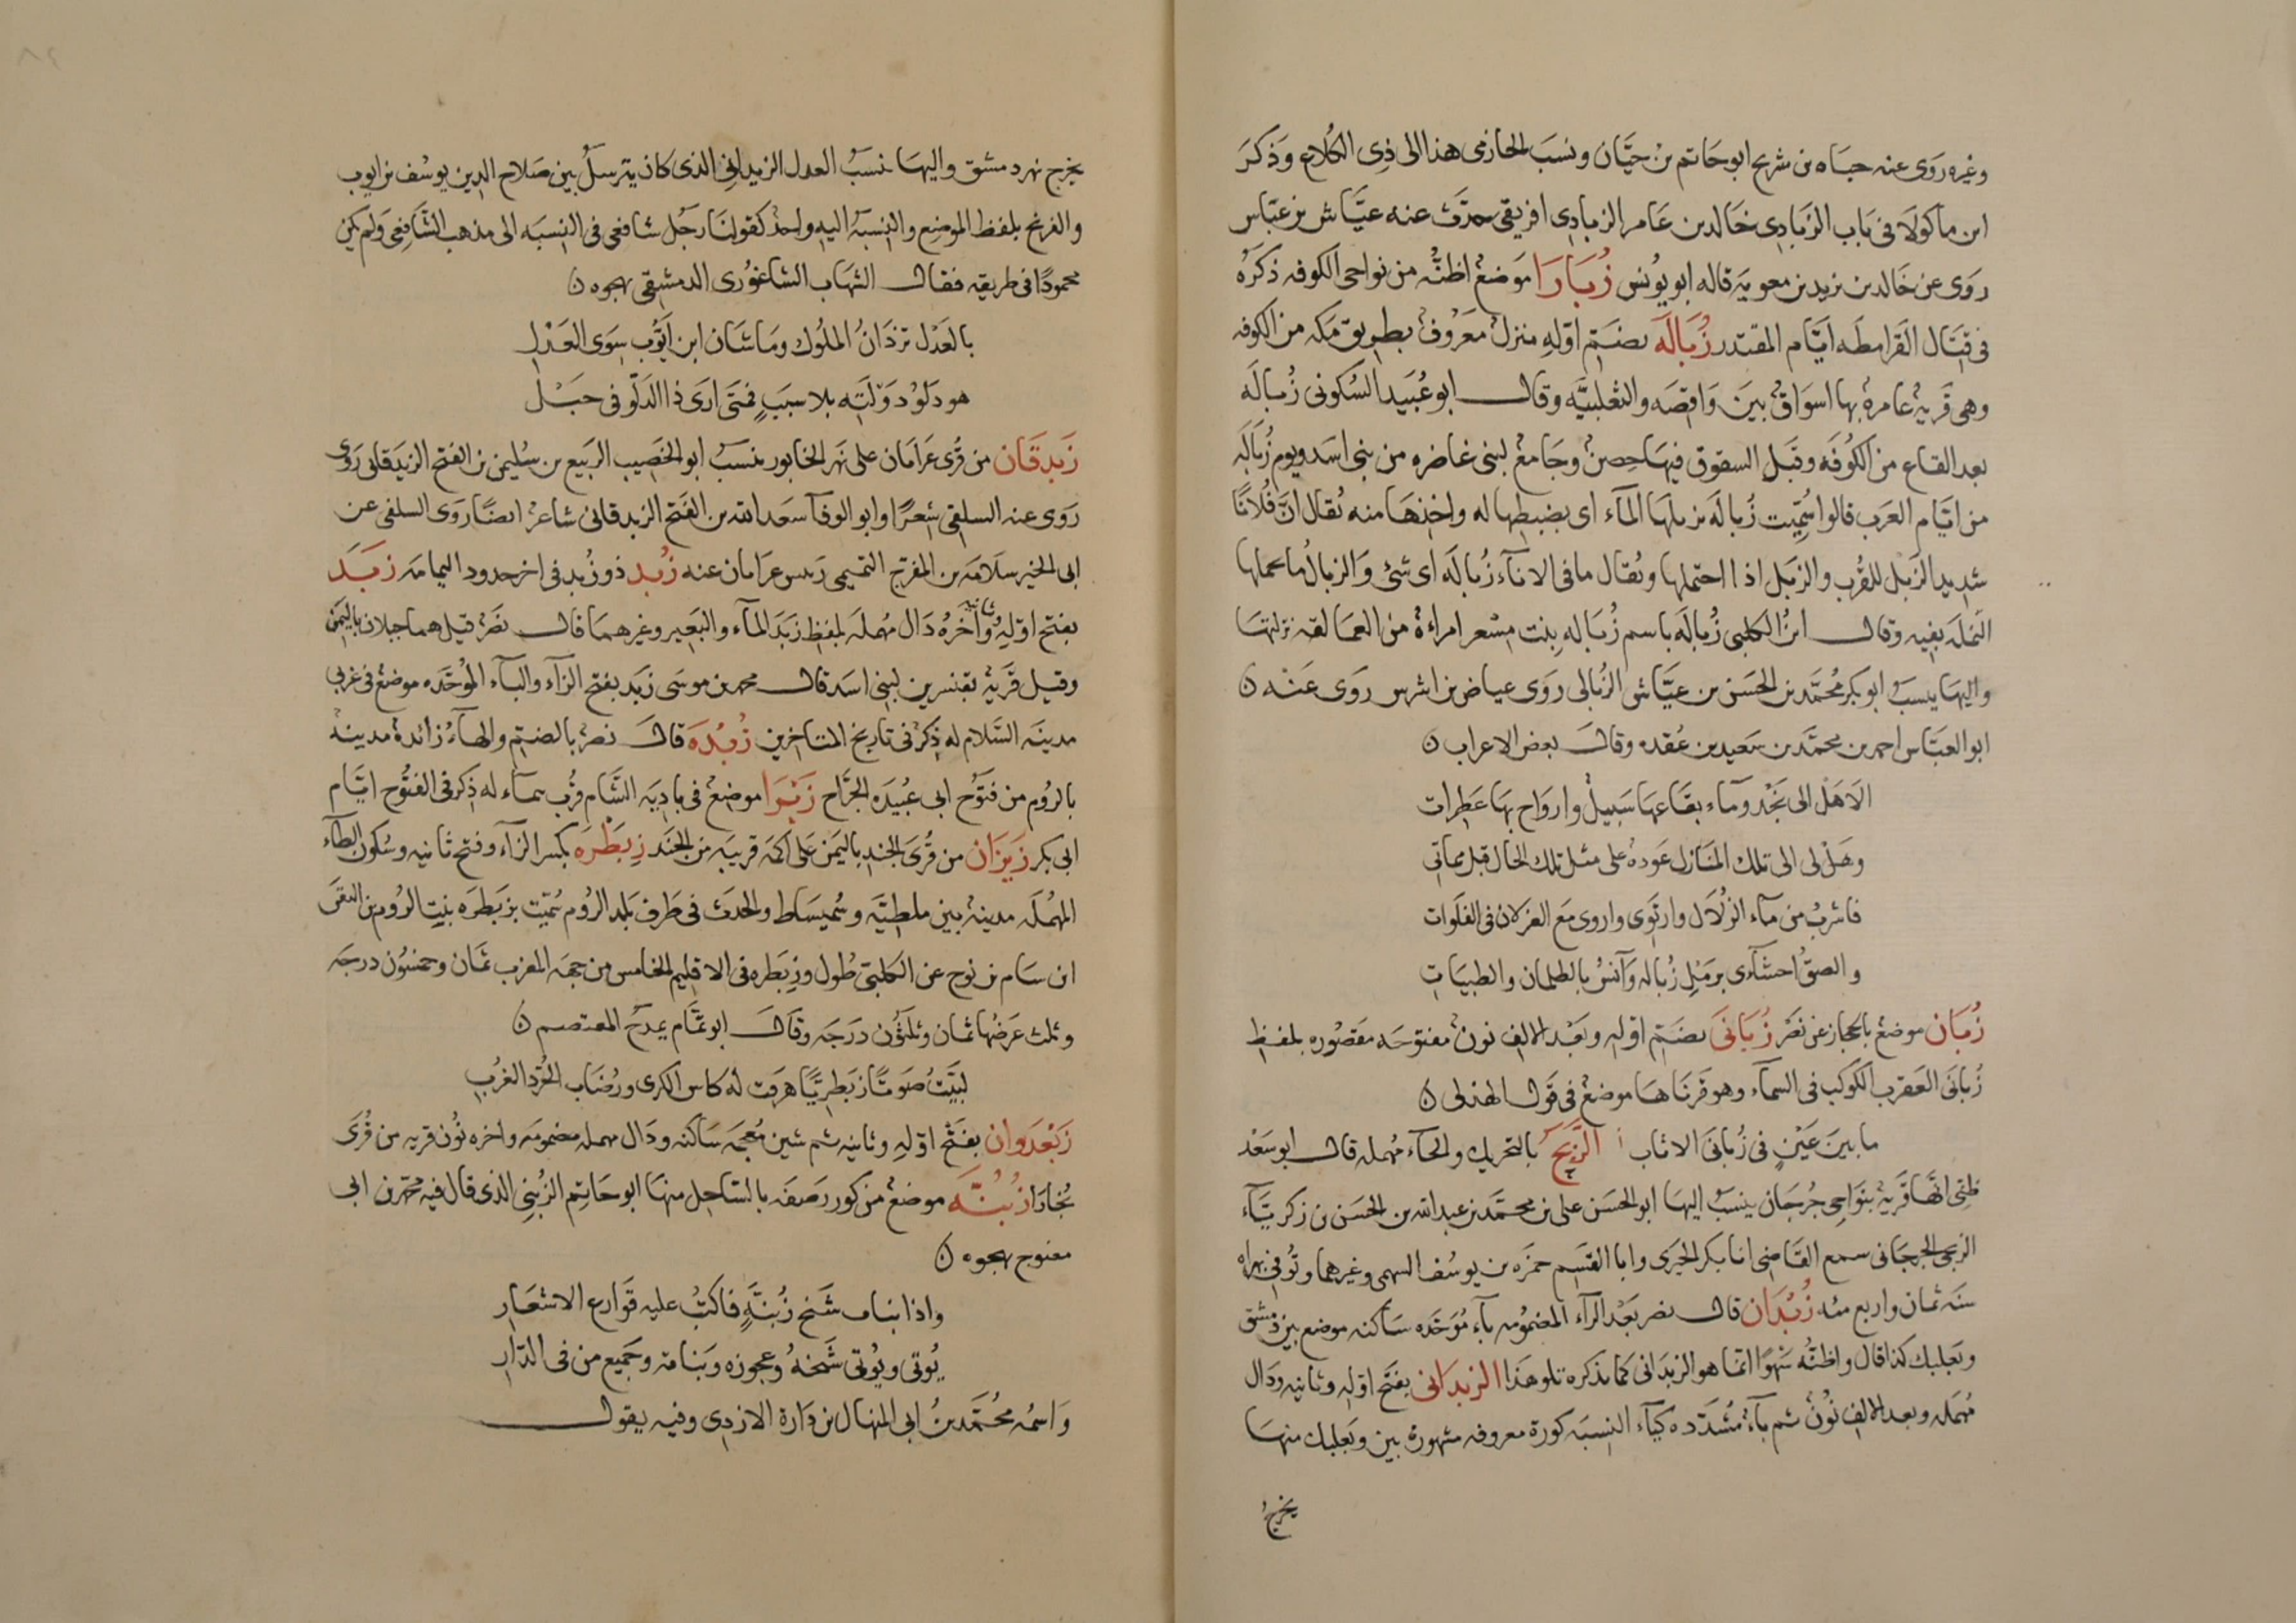 وغيره روى عنه حياه بن شريح ابو حاتم بن حبّان ونسب الحازمى هذا الى ذى الكلاع وذكر
ابن ماكولا فى باب الزبادى خالد بن عامر الزبادى افريقى حدّث عنه عيّاش بن عبّاس
روى عن خالد بن يزيد بن معوية قاله ابو يونس زُبارا موضعٌ اظنّه من نواحى الكوفه ذكره
فى قتال القرامطه ايّام المقتدر زُباله بضمّ اوّله منزل معروف بطريق مكه من الكوفه
وهى قرية عامرة بها اسواق بين واقصه والثعلبيّه وقال ابو عُبيد السكونى زُباله
بعد القاع من الكوفه وقبل السقوق فيها حصن وجامع لبنى غاضره من بنى اسد ويوم زُباله
من ايّام العرب قالوا سُمّيت زُباله بزبلها المآء اى بضبطها له واخذها منه يُقال انّ فُلانًا
شديد الزبل للقُرب والزبل اذا احتملها ويُقال ما فى الانآء زُباله اى شئ والزبال ما تحملها
النمله بفيه وقال ابنُ الكلبى زُباله باسم زُباله بنت مِسْعر امراءة من العمالقه نزلتها
واليها ينسبُ ابو بكر مُحمّد بن الحسن بن عيّاش الزُبالى روى عياض بن اشرس روى عنه ن
ابو العبّاس احمد بن محمّد بن سعيد بن عُقده وقال بعض الاعراب ن
الا هل الى نجد ومآء بقاعها سبيلٌ وارواح بها عطرات
وهل لى الى تلك المنازل عودة على مثل تلك الحال قبل مماتى
فاشربُ من مآء الزلال وارتوى واروى مع الغزلان فى الفلوات
والصقُ احشآءى برمل زُباله وآنسُ بالظلمان والظبيات
زُبان موضع بالحجاز عن نصر زُبانَى بضمّ اوله وبعد الالف نون مفتوحه مقصوره بلفظ
زُبانَى العقرب الكوكب فى السمآء وهو قرناها موضع فى قول الهذلى ن
ما بين عَيْنٍ فى زُبانى الاثاب الزَبَح بالتحريك والحآء مُهمله قال ابو سعد
ظنّى انّها قرية بنواحى جُرجان ينسبُ اليها ابو الحسن على بن محمّد بن عبد الله بن الحسن بن زكريّآء
الزبحى الجرجانى سمع القاضى ابا بكر الحيرى وابا القسم حمزه بن يوسف السهمى وغيرهما وتُوفى بهراه
سنه ثمان واربع مئه زُبدان قال نصر بعد الزآء المضمُومه بآء مُوحّده ساكنه موضع بين دمشق
وبعلبك كذا قال واظنّه سَهوًا انّما هو الزبدانى كما نذكره تلو هذا الزبدانى بفتح اوّله وثانيه ودال
مُهمله وبعد الالف نُون ثم يآء مُشدّده كيآء النسبه كورة معروفه مشهورة بين وبعلبك منها
يخرجُ
يخرج نهر دمشق واليها نسبُ العدل الزبدانى الذى كان يترسلُ بين صلاح الدين يوسُف بن ايوب
والفرنج بلفظ الموضع والنسبةُ اليه واحدٌ كقولنا رجُل شافعى فى النسبه الى مذهب الشافعى ولم يكن
محمودًا فى طريقه فقال الشهاب الشاغورى الدمشقى يهجوه ن
بالعَدْل تزدانُ الملُوك وما شان ابن ايّوب سِوى العدل
هو دلو دولته بلا سببٍ فمتى ارى ذا الدلو فى حبْل
زَبدقان من قُرى عرامان على نهر الخابور ينسبُ ابو الخصيب الربيع بن سُليمن بن الفتح الزبدقانى روى
روى عنه السلفى شعرًا وابو الوفآ سعد الله بن الفتح الزبدقانى شاعرٌ ايضًا روى السلفى عن
ابى الخير سلامه بن المفرج التميمى رئيس عرامان عنه زُبد ذو زُبد فى اخر حدود اليمامه زبَد
بفتح اوّله وثانيه وآخره دال مُهمله بلفظ زبد المآء والبعير وغيرهما قال نصر قيل هما جبلان باليمن
وقيل قرية بقنسرين لبنى اسد قال محمد بن موسى زبد بفتح الزآء والبآء الموحّده موضع فى غربى
مدينه السّلام له ذكر فى تاريخ المتاخرين زُبْده قال نصر بالضمّ والهاء زائدة مدينة
بالروم من فتوح ابى عُبيده الجرّاح زَبْرا موضع فى بادية الشّام قرب تيمآء له ذكر فى الفتُوح ايّام
ابى بكر زَبران من قُرى الجند باليمن على اكمه قريبه من الجند زِبَطْره بكسر الزآء وفتح ثانيه وسُكون الطآء
المُهمله مدينة بين ملطيّه وسُميساط والحدث فى طرف بلد الرُوم سُمّيت بزبطره بنت الرُوم بن اليقى
ان سام بن نوح عن الكلبىّ طُول زِبطره فى الاقليم الخامس من جهه المغرب ثمان وخمسُون درجه
وثلث عرضُها ثمان وثلثُون درجه وقال ابو تمّام يمدح المعتصم ن
لبيّتُ صوتًا زبطريًّا هرقت له كاس الكرى ورُضاب الخُرّد العُرُبِ
زَبْغدوان بفتح اوّله وثانيه ثم شين مُعجمه ساكنه ودال مهمله مضمومه واخره نُون قريه من قُرى
بُخارا زُبُنّه موضع من كور رصفه بالساحل منها ابو حاتم الزُبنى الذى قال فيه محمّد بن ابى
معتوج يهجوه ن
واذا بناب شيخ زُبنةٍ فاكتُب عليه قوارع الاشعار
يُوتى ويُوتى شيخهُ وعجوزه وبناته وجميع من فى الدّار
واسمُه محُمّد بنُ ابى المنهال بن دارة الازدى وفيه يقول